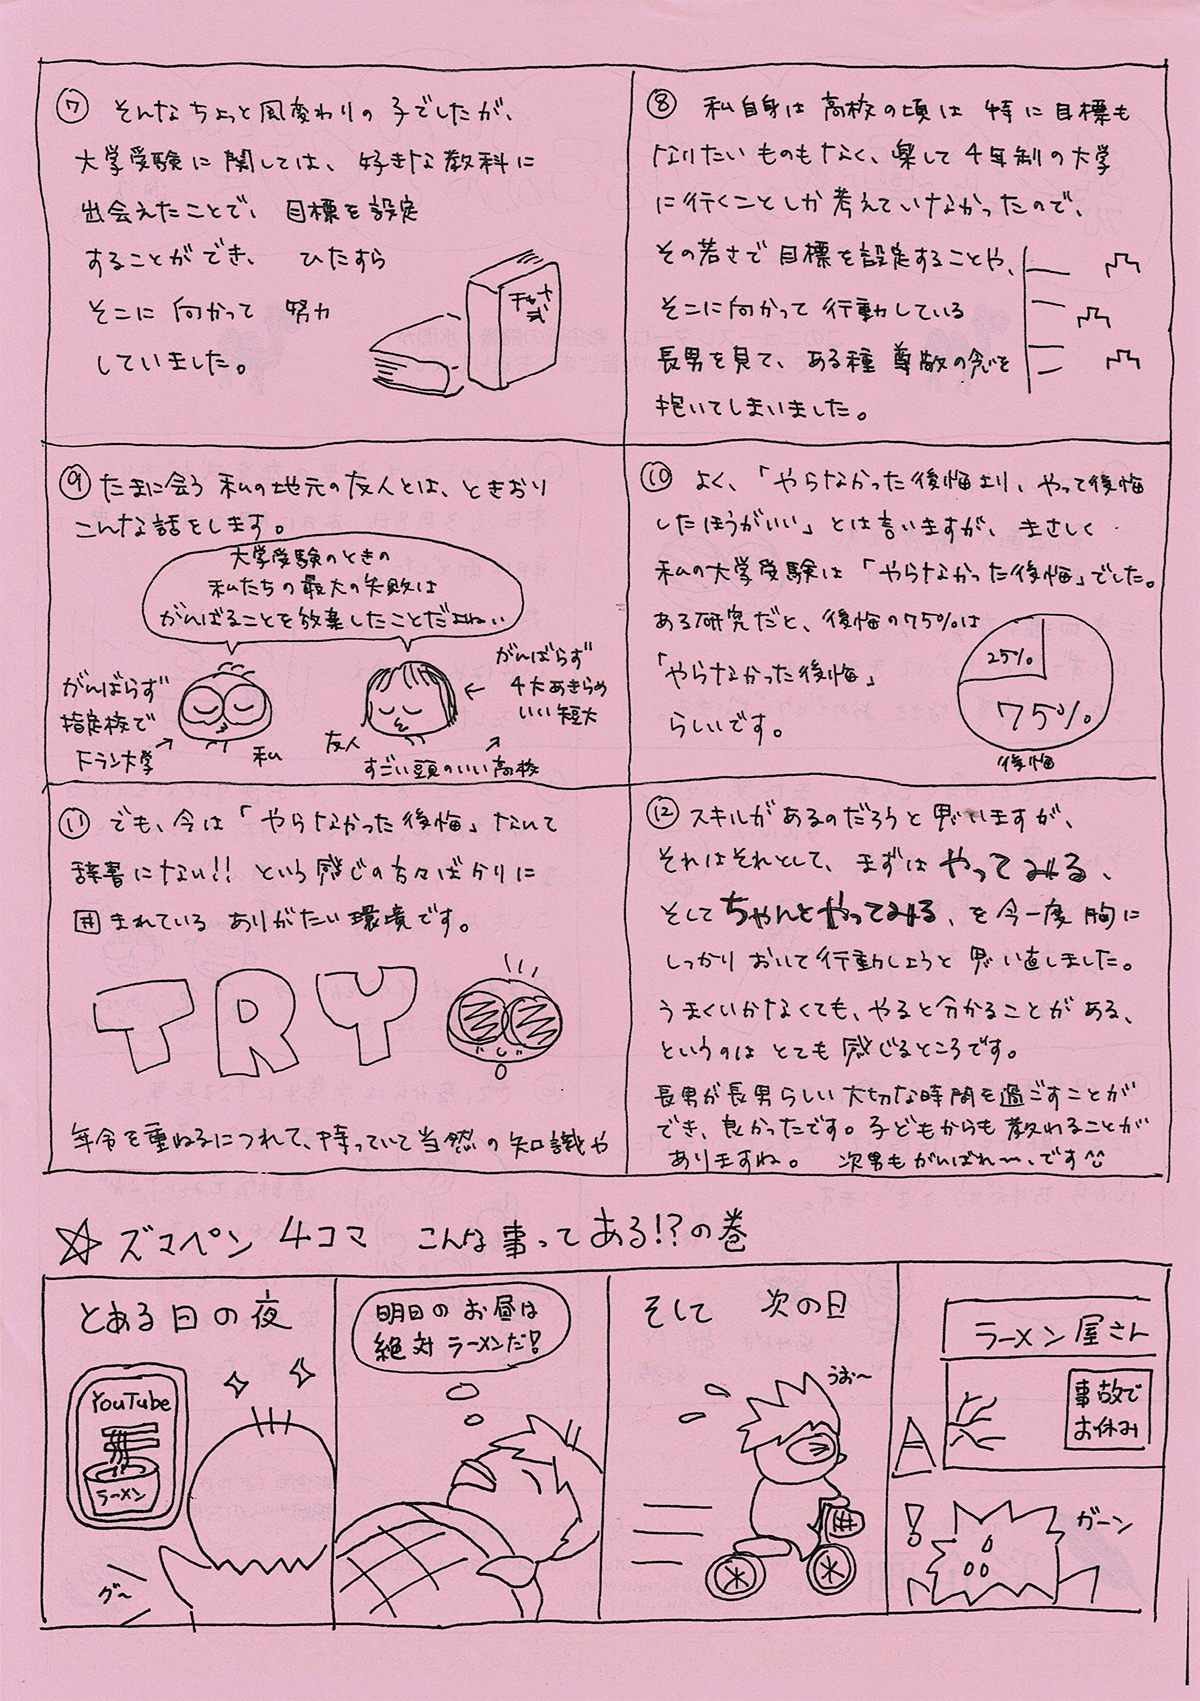 ⑦ そんなちょっと風変わりの子でしたが、
大学受験に関しては、好きな教科に
出会えたことで、目標を設定
することができ、ひたすら
そこに向かって努力
していました。
チャート式
⑧ 私自身は高校の頃は特に目標も
なりたいものもなく、楽して4年制の大学
に行くことしか考えていなかったので、
その若さで目標を設定することや、
そこに向かって行動している
長男を見て、ある種尊敬の念を
抱いてしまいました。
⑨ たまに会う私の地元の友人とは、ときおり
こんな話をします。
大学受験のときの
私たちの最大の失敗は
がんばることを放棄したことだよねぃ
がんばらず
指定校で
Fラン大学
私
友人
がんばらず
4大あきらめ
いい短大
すごい頭のいい高校
⑩ よく、「やらなかった後悔より、やって後悔
したほうがいい」とは言いますが、まさしく
私の大学受験は「やらなかった後悔」でした。
ある研究だと、後悔の75%は
「やらなかった後悔」
らしいです。
25%
75%
後悔
⑪ でも、今は「やらなかった後悔」なんて
辞書にない!! という感じの方々ばかりに
囲まれているありがたい環境です。
TRY
年令を重ねるにつれて、持っていて当然の知識や
⑫ スキルがあるのだろうと思いますが、
それはそれとして、まずはやってみる、
そしてちゃんとやってみる、を今一度胸に
しっかりおいて行動しようと思い直しました。
うまくいかなくても、やると分かることがある、
というのはとても感じるところです。
長男が長男らしい大切な時間を過ごすことが
でき、良かったです。子どもからも教わることが
ありますね。 次男もがんばれ〜、です
☆ ズマペン 4コマ こんな事ってある!?の巻
とある日の夜
YouTube
ラーメン
グ〜
明日のお昼は
絶対ラーメンだ!
そして 次の日
うお〜
ラーメン屋さん
事故で
お休み
A
!
ガーン